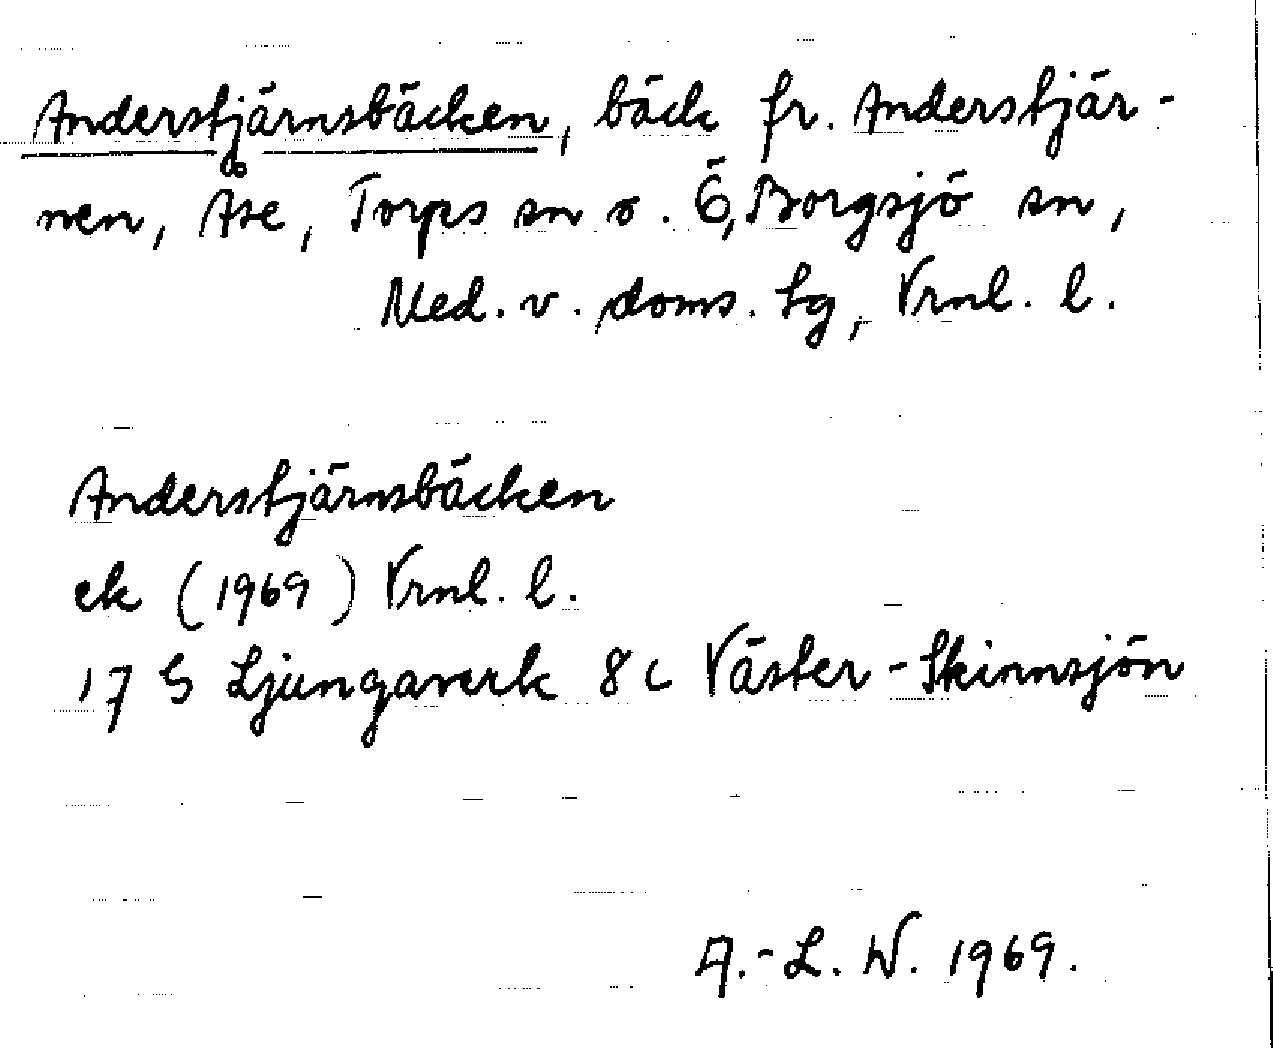 Anderstjärnsbäcken, bäck fr. Anderstjär-
nen, Åse, Torps sn o. Ö, Borgsjö sn,
Med. v. doms. tg, Vrnl. l.
Anderstjärnsbäcken
ek (1969) Vrnl. l.
17 G Ljungaverk 8 c Väster-Skinnsjön
A.-L. W. 1969.